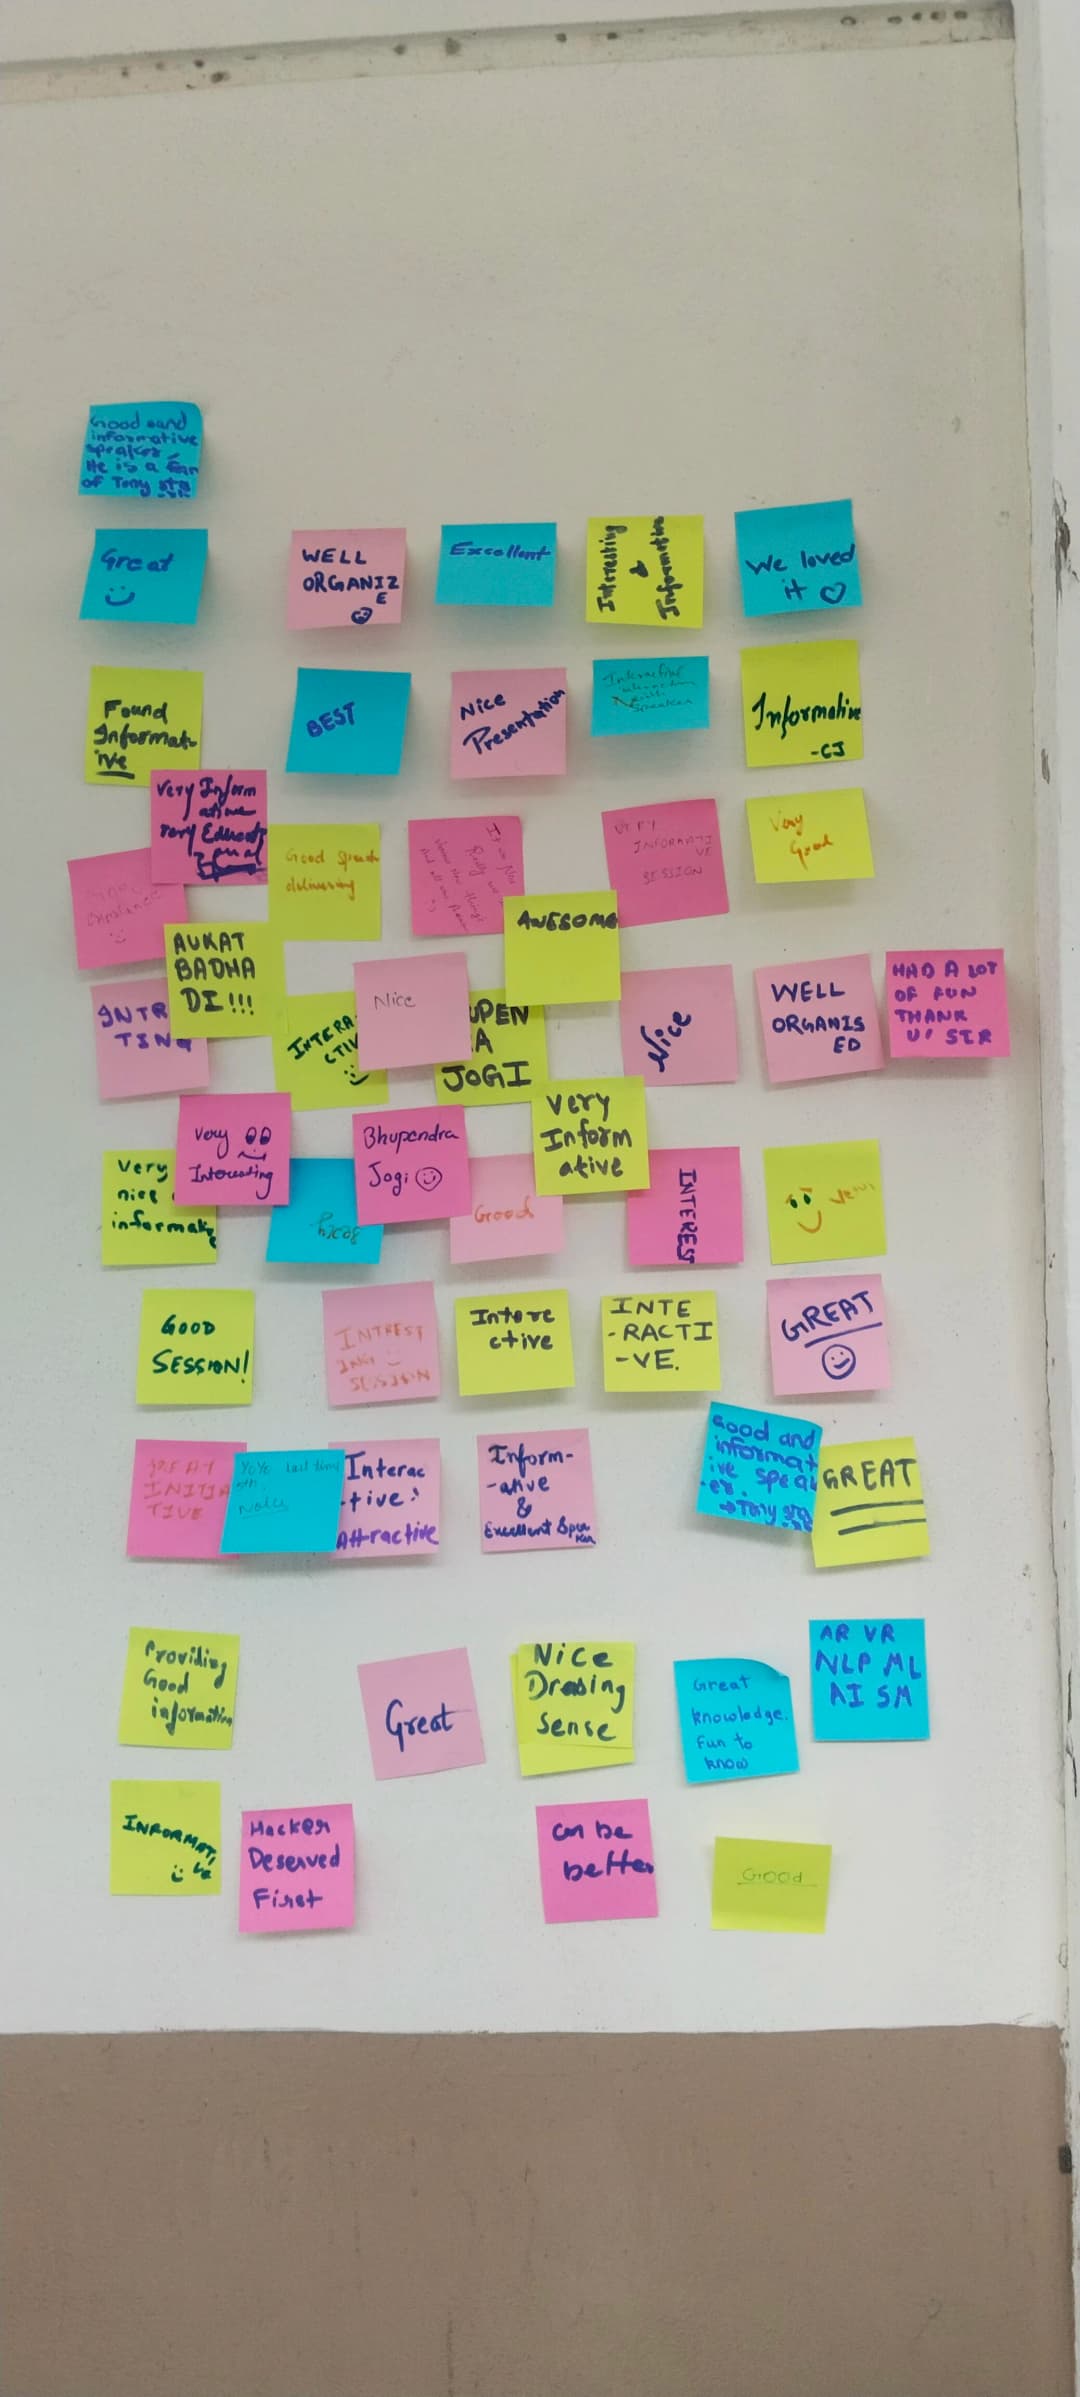 Good and
informative
speaker
He is a fan
of Tony
Great
WELL
ORGANIZ
E
Excellent
Interesting
&
Informative
We loved
it ♡
Found
Informat-
ive
BEST
Nice
Presentation
Interactive
interaction
with
speaker
Informative
-CJ
Very Inform
ative
Very Educat
Good
delivering
VERY
INFORMATI
VE
SESSION
Very
Good
AWESOME
AUKAT
BADHA
DI!!!
INTR
TING
INTERA
CTIV
Nice
UPEN
A
JOGI
Nice
WELL
ORGANIS
ED
HAD A LOT
OF FUN
THANK
U! SIR
Very
Interesting
Bhupendra
Jogi
Very
Inform
ative
Very
nice
informativ
e
Good
INTEREST
GOOD
SESSION!
INTREST
ING
SESSION
Intere
ctive
INTE
-RACTI
-VE.
GREAT
GREAT
INITIA
TIVE
YoYo Last time
Interac
-tive!
Attractive
Inform-
-ative
&
Excellent Spea
ker
Good and
informat
ive spea
-er.
→Tony
GREAT
Providing
Good
information
Great
Nice
Drasing
sense
Great
knowledge.
Fun to
know
AR VR
NLP ML
AI SM
INFORMATI
ve
Hacker
Deserved
First
can be
better
Good